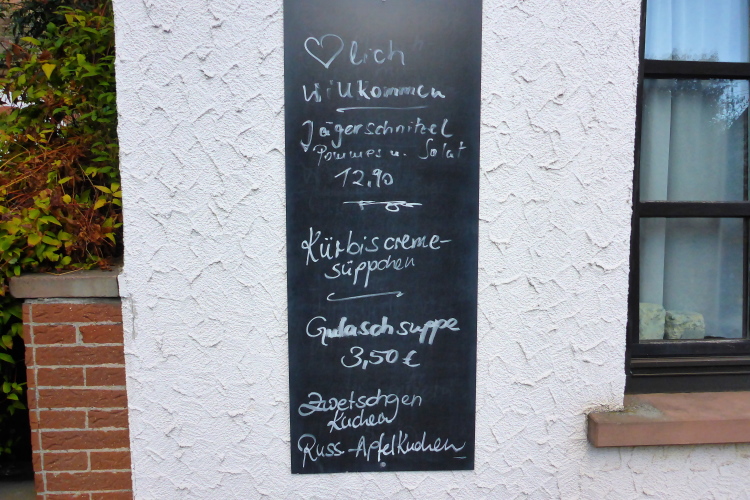 ♡lich
Willkommen
Jägerschnitzel
Pommes u. Salat
12,90
Kürbiscreme-
süppchen
Gulaschsuppe
3,50€
Zwetschgen
Kuchen
Russ-Apfelkuchen